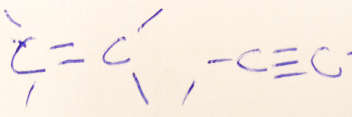 C=C, -C≡C-